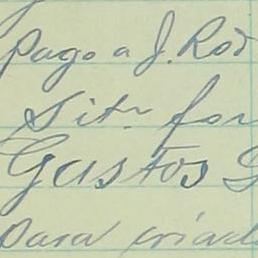 Pago a J. Rod
Sitr for
Gastos G
para criad